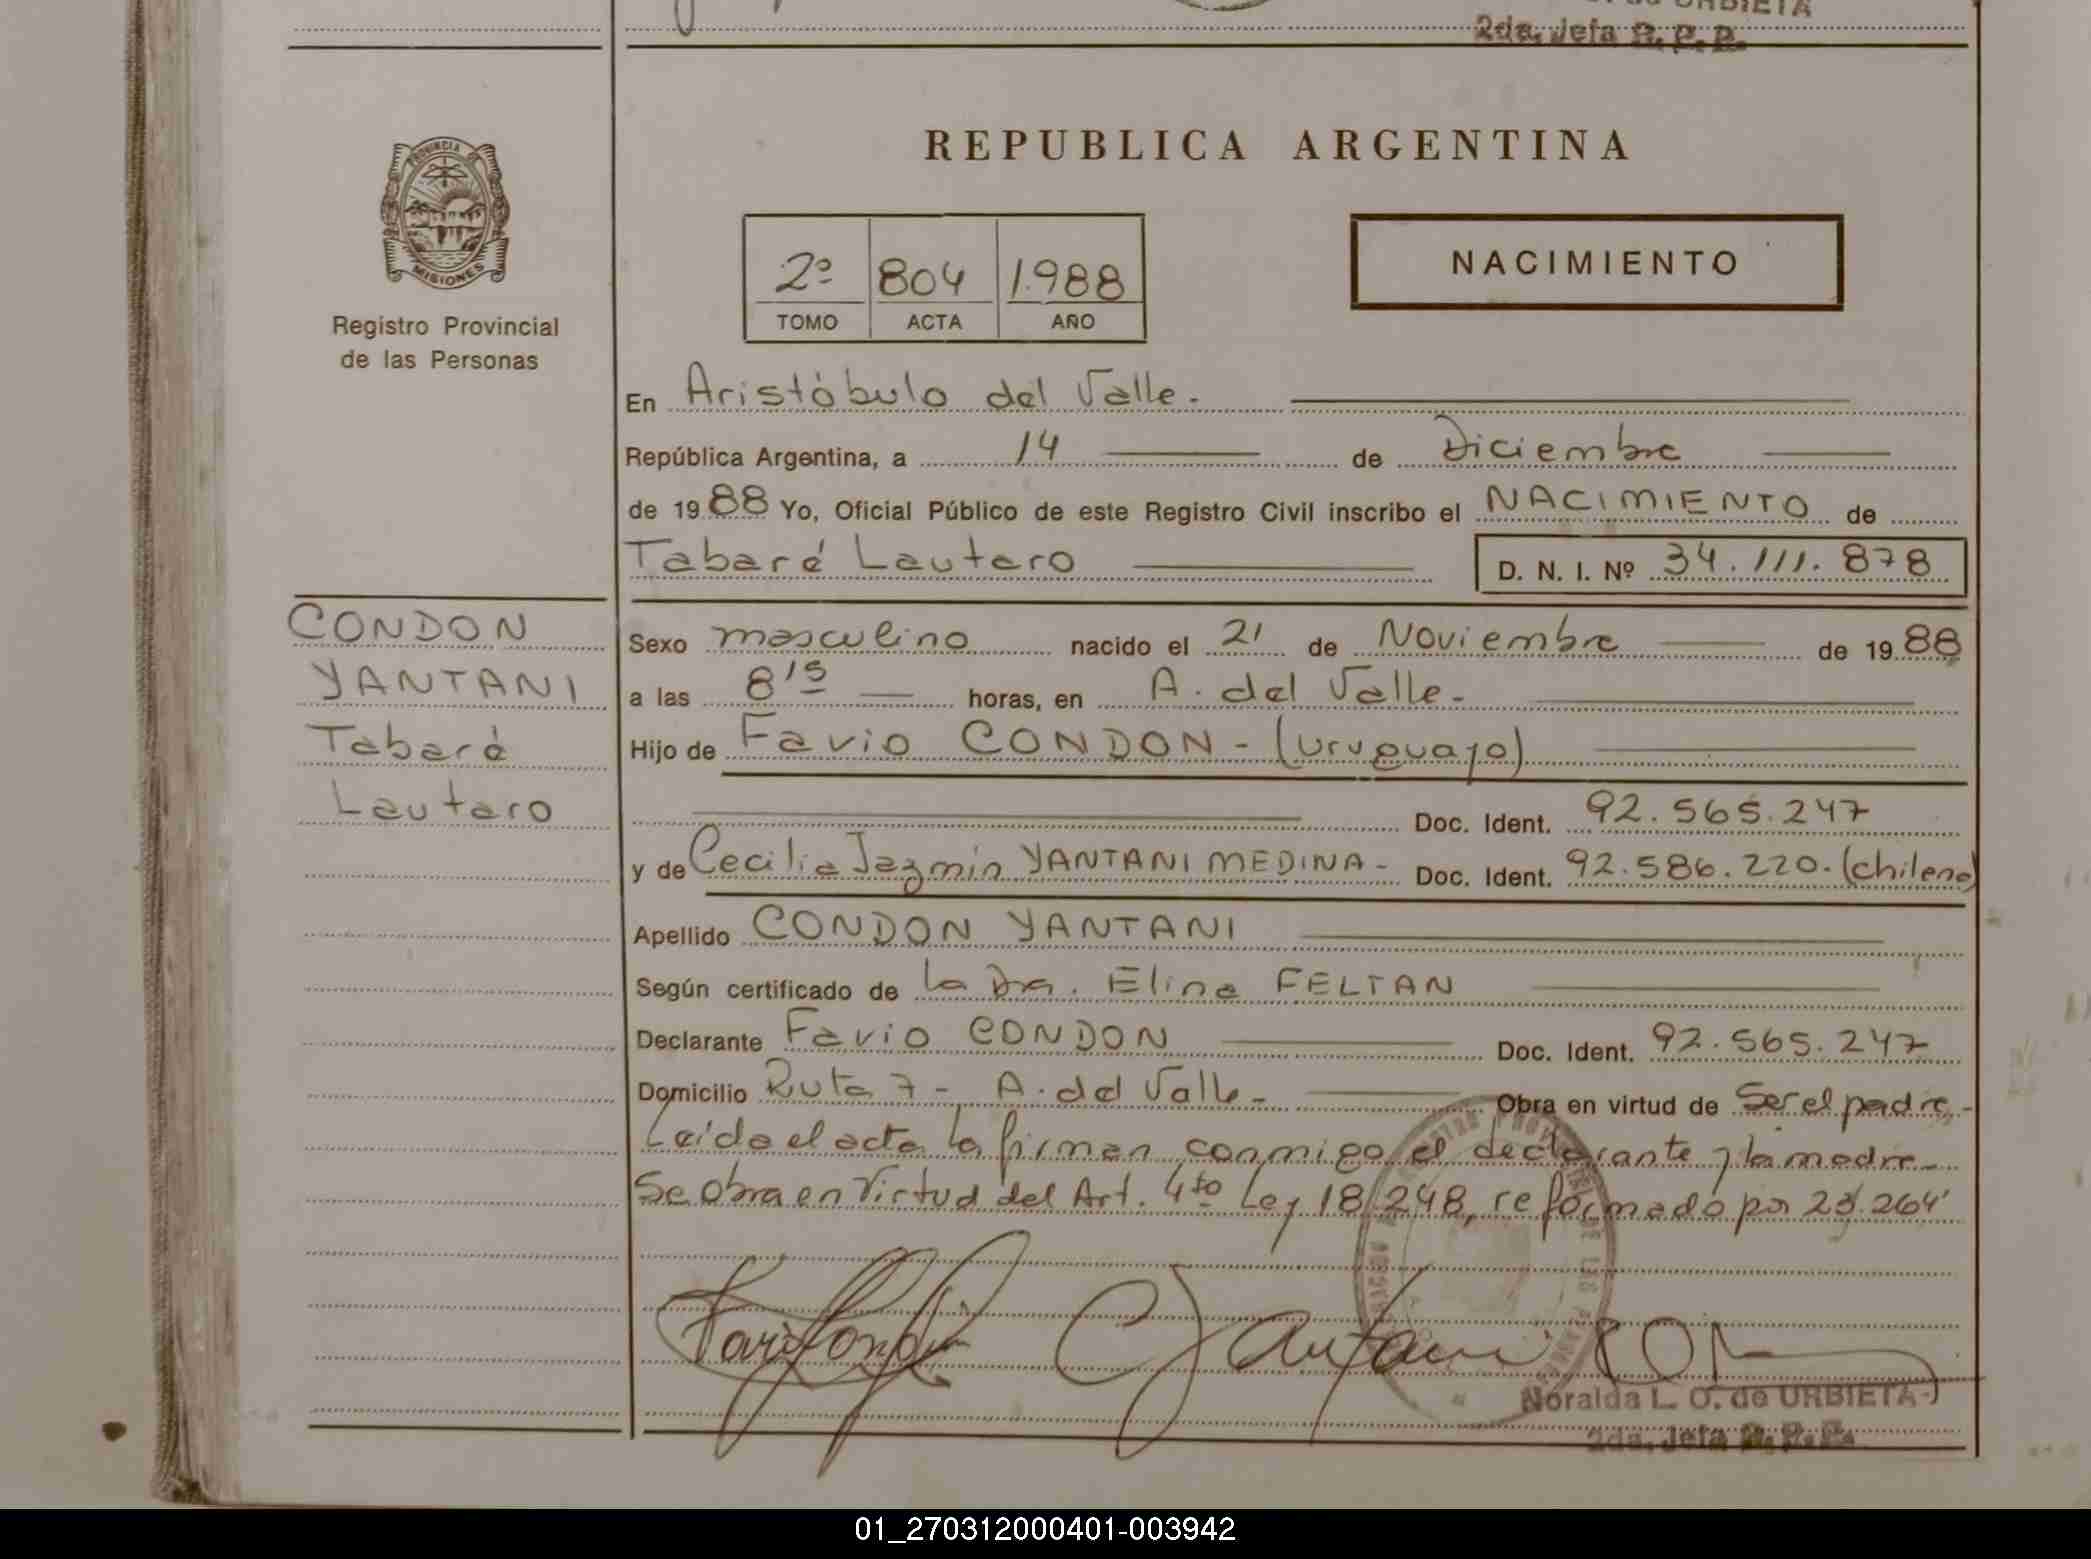 2da. Jefa R. P. P.
PROVINCIA DE
MISIONES
Registro Provincial
de las Personas
REPUBLICA ARGENTINA
2º 804 1.988
TOMO ACTA AÑO
NACIMIENTO
En Aristóbulo del Valle.
República Argentina, a 14 de Diciembre
de 1988 Yo, Oficial Público de este Registro Civil inscribo el NACIMIENTO de
Tabaré Lautaro D. N. I. Nº 34.111.878
CONDON
YANTANI
Tabaré
Lautaro
Sexo masculino nacido el 21 de Noviembre de 1988
a las 8 15 horas, en A. del Valle.
Hijo de Favio CONDON - (uruguayo)
Doc. Ident. 92.565.247
y de Cecilia Jazmín YANTANI MEDINA - Doc. Ident. 92.586.220. (chilena)
Apellido CONDON YANTANI
Según certificado de la Dra. Elina FELTAN
Declarante Favio CONDON Doc. Ident. 92.565.247
Domicilio Ruta 7 - A. del Valle - Obra en virtud de Ser el padre.-
Leída el acta la firman conmigo el declarante y la madre.-
Se obra en Virtud del Art. 4to Ley 18.248, reformado por 23.264
Noralda L. O. de URBIETA
2da. Jefa R. P. P.
01_270312000401-003942